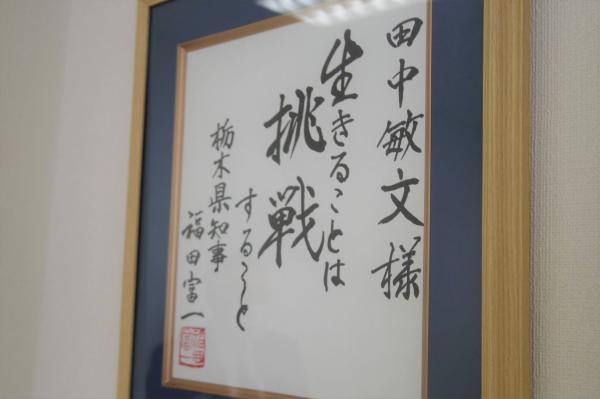 田中敏文様
生きることは
挑戦
すること
栃木県知事
福田富一